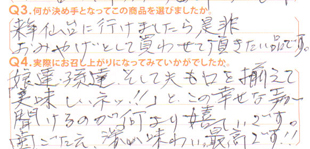 Q3.何が決め手となってこの商品を選びましたか。
来年仙台に行けましたら是非
おみやげとして買わせて頂きたい品です。
Q4.実際にお召し上がりになってみていかがでしたか。
娘達、孫達そして夫も口を揃えて
美味しいネッ!!」と、この幸せな声
聞けるのが何より嬉しいです。
歯ごたえ、深い味わい最高です!!